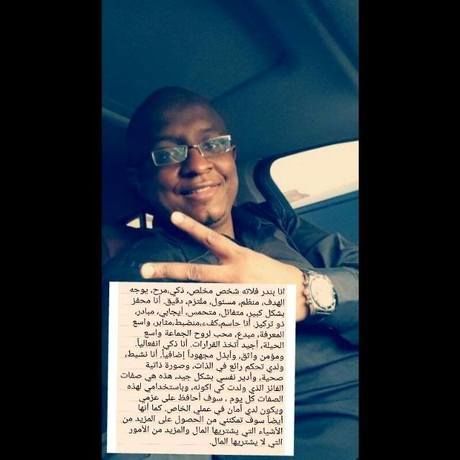 انا بندر فلاته شخص مخلص، ذكي،مرح، يوجه
الهدف، منظم، مسئول، ملتزم، دقيق. أنا محفز
بشكل كبير، متفائل، متحمس، أيجابي، مبادر،
ذو تركيز. أنا حاسم،كفء،منضبط،مثابر، واسع
المعرفة، مبدع، محب لروح الجماعة واسع
الحيلة، أجيد أتخذ القرارات. أنا ذكي انفعالياً.
ومؤمن واثق، وأبذل مجهوداً إضافياً. أنا نشيط،
ولدي تحكم رائع في الذات، وصورة ذاتية
صحية، وأدير نفسي بشكل جيد، هذه هي صفات
الفائز الذي ولدت كي اكونه، وباستخدامي لهذه
الصفات كل يوم ، سوف أحافظ على عزمي
ويكون لدي أمان في عملي الخاص. كما أنها
أيضاً سوف تمكنني من الحصول على المزيد من
الأشياء التي يشتريها المال والمزيد من الأمور
التي لا يشتريها المال.